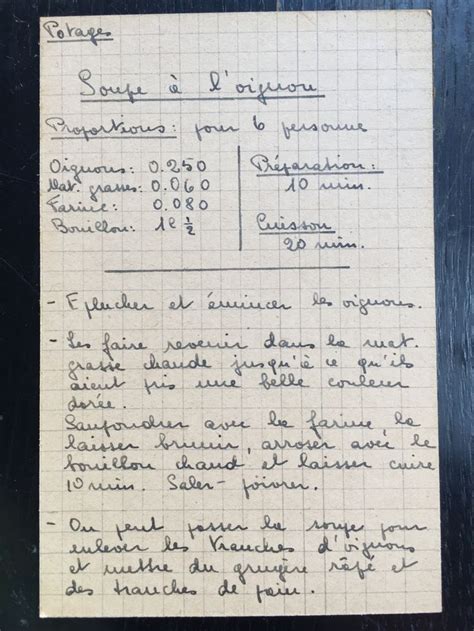 Potages
Soupe à l'oignon
Proportions: pour 6 personne
Oignons: 0.250
Mat. grasses: 0.060
Farine: 0.080
Bouillon: 1l ½
Préparation:
10 min.
Cuisson
20 min.
- Eplucher et émincer les oignons.
- Les faire revenir dans la mat.
grasse chaude jusqu'à ce qu'ils
aient pris une belle couleur
dorée.
Saupoudrer avec la farine, la
laisser brunir, arroser avec le
bouillon chaud et laisser cuire
10 min. Saler - poivrer.
- On peut passer la soupe pour
enlever les tranches d'oignons
et mettre du gruyère râpé et
des tranches de pain.